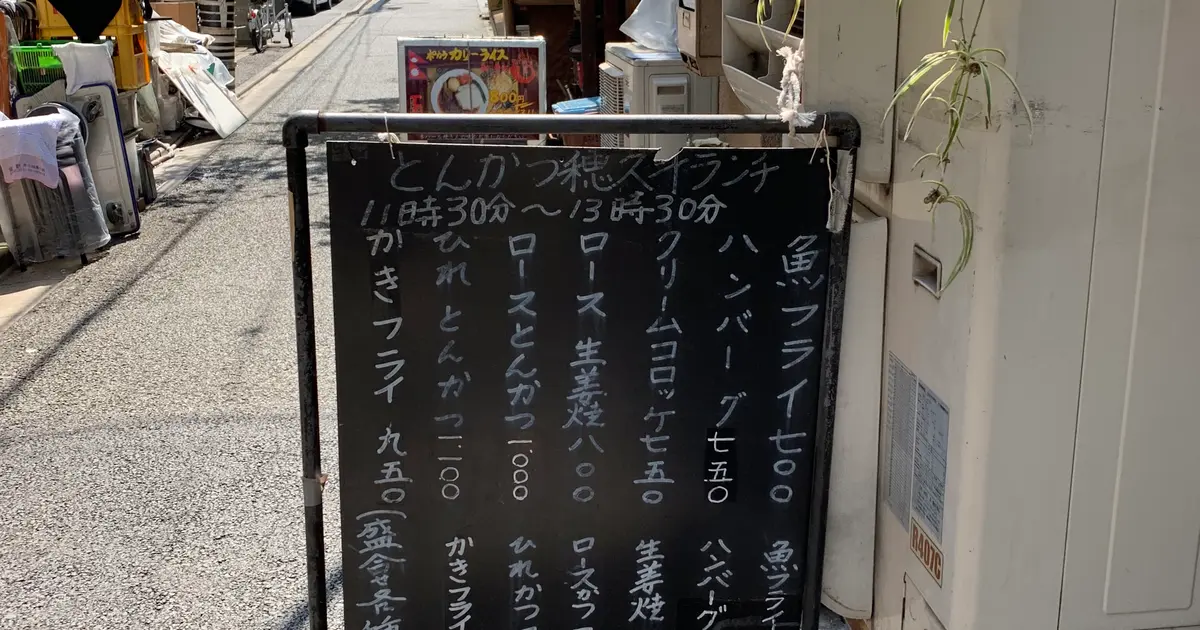 カリーライス
とんかつ穂スキランチ
11時30分～13時30分
魚フライ七〇〇
ハンバーグ七五〇
クリームコロッケ七五〇
ロース生姜焼八〇〇
ロースとんかつ一〇〇〇
ひれとんかつ一一〇〇
かきフライ 九五〇
魚フライ
ハンバーグ
生姜焼
ロースかつ
ひれかつ
かきフライ
(盛合せ各
R407C